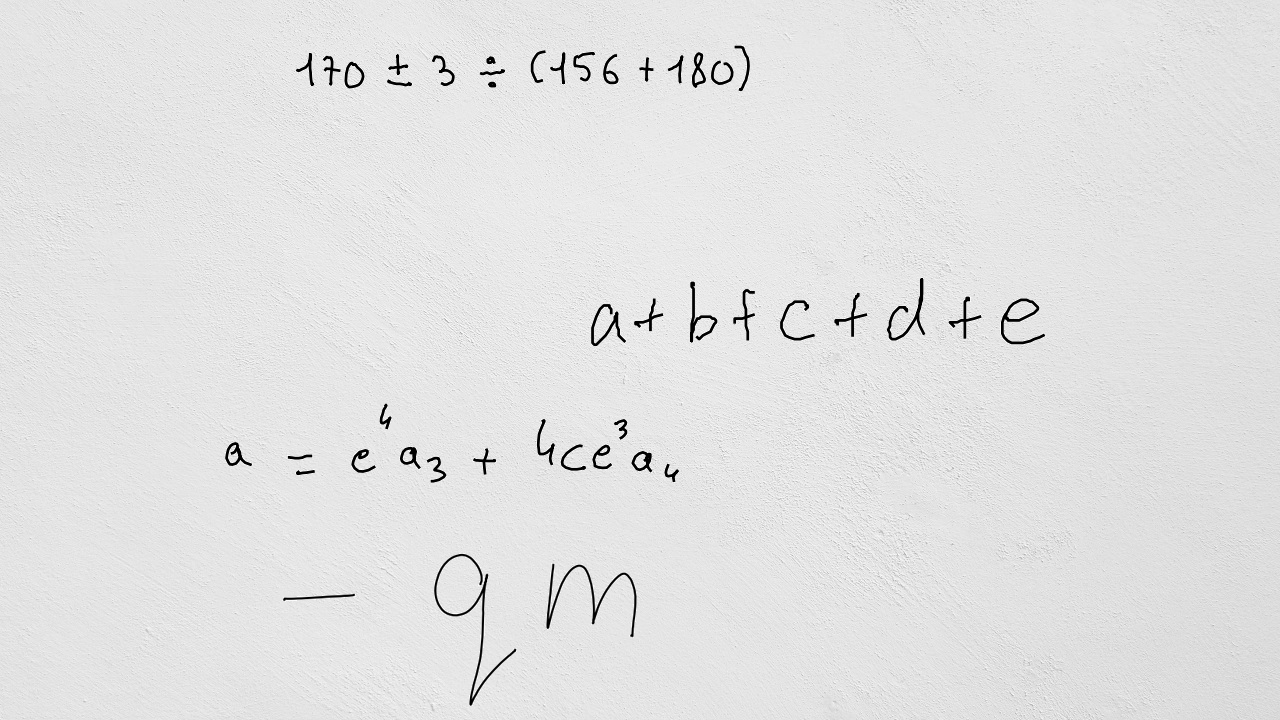 170 ± 3 ÷ (156 + 180)
a + b + c + d + e
a = e⁴a₃ + 4ce³a₄
— q m